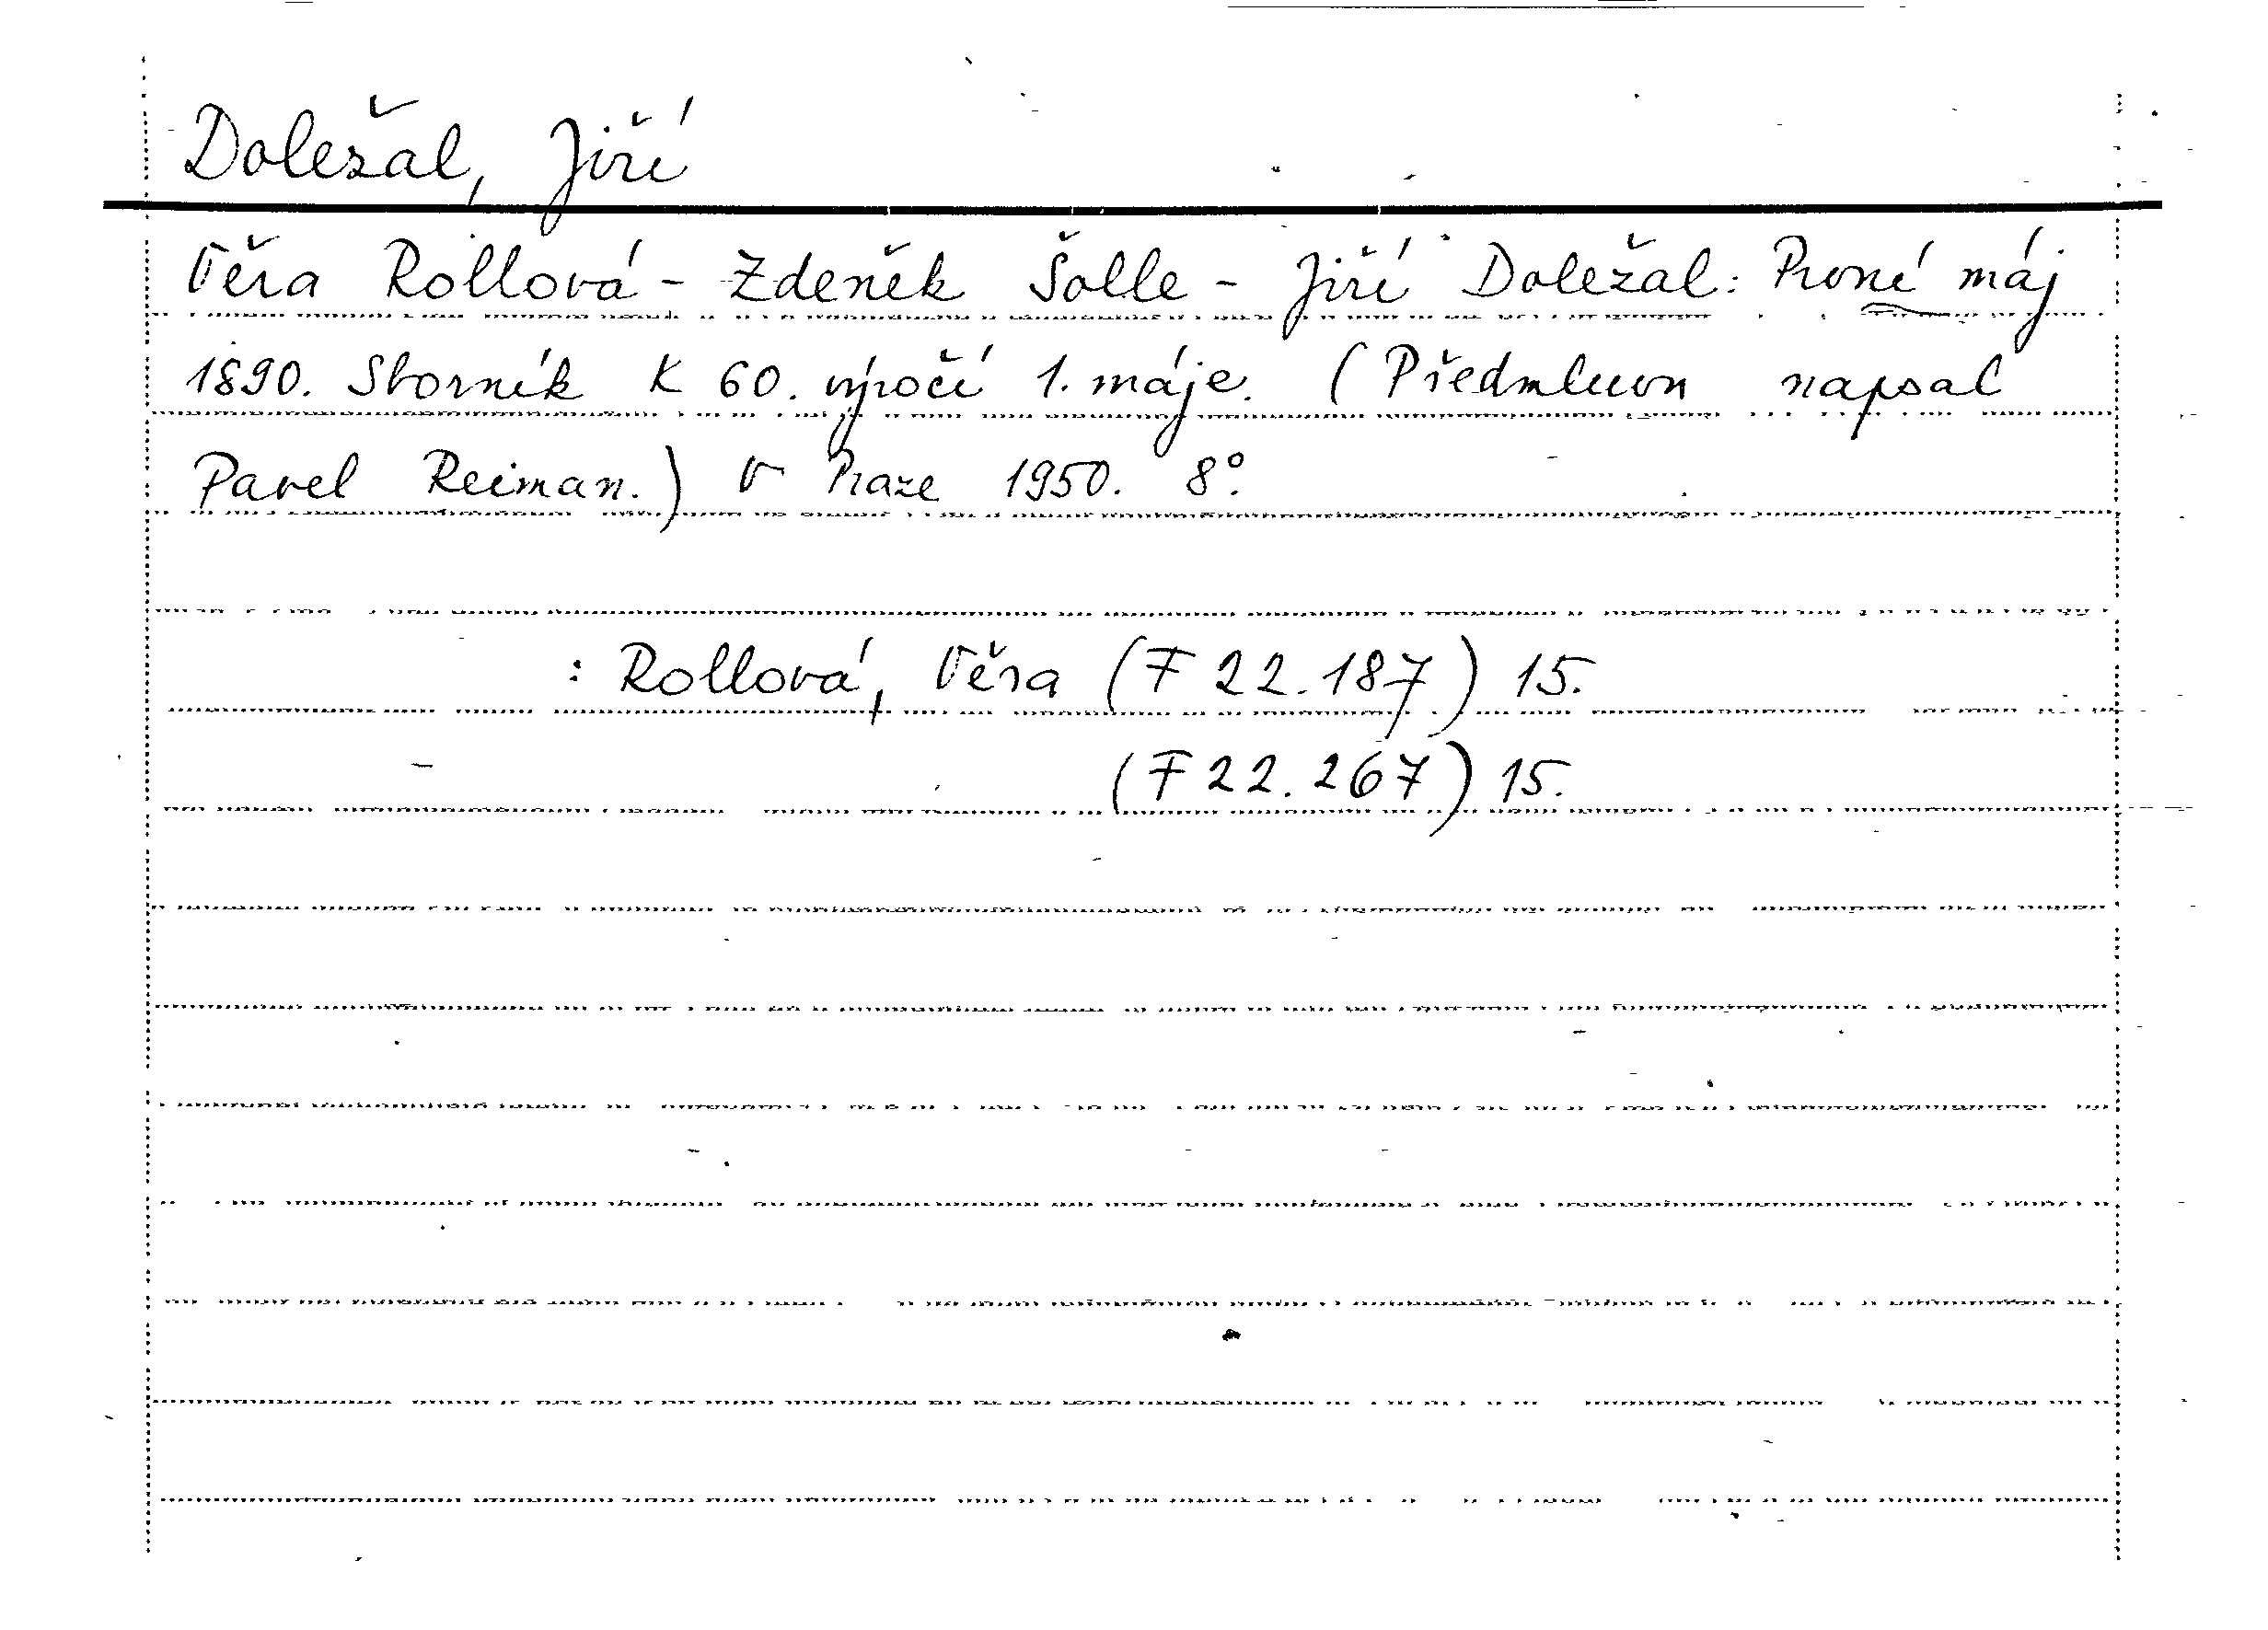 Doležal, Jiří
Věra Rollová - Zdeněk Šolle - Jiří Doležal: První máj
1890. Sborník k 60. výročí 1. máje. (Předmluvu napsal
Pavel Reiman.) V Praze 1950. 8°.
: Rollová, Věra (F 22.187) 15.
(F 22.267) 15.